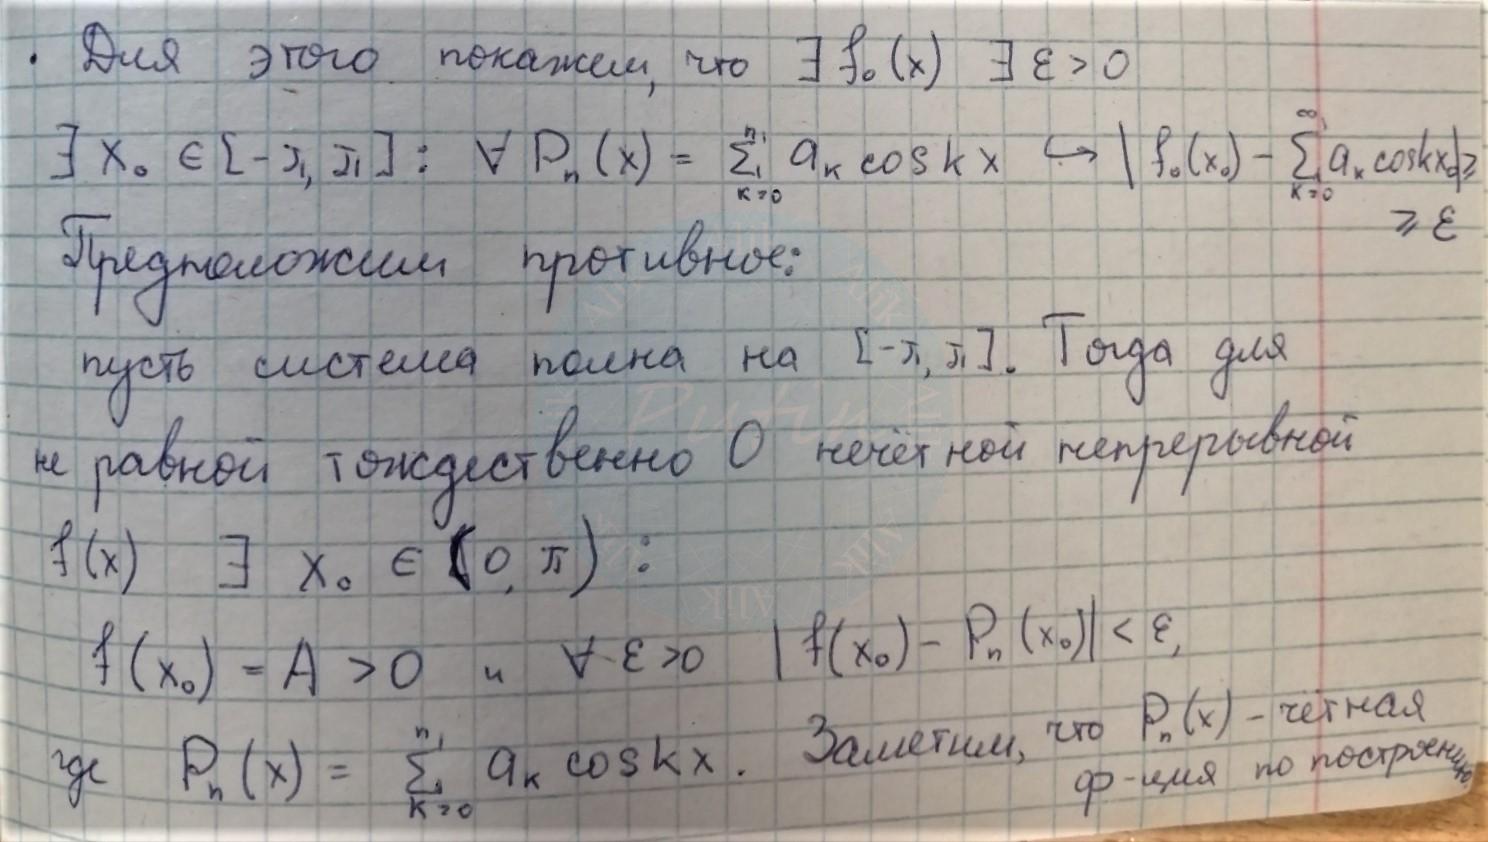 · Для этого покажем, что ∃ f₀(x) ∃ ε > 0
∃ x₀ ∈ [-π, π]: ∀ Pₙ(x) = ∑ₖ₌₀ⁿ aₖ cos kx ↪ |f₀(x₀) - ∑ₖ₌₀^∞ aₖ cos kx₀| ≥
≥ ε
Предположим противное:
пусть система полна на [-π, π]. Тогда для
не равной тождественно 0 нечётной непрерывной
f(x) ∃ x₀ ∈ (0, π):
f(x₀) = A > 0 и ∀ ε > 0 |f(x₀) - Pₙ(x₀)| < ε,
где Pₙ(x) = ∑ₖ₌₀ⁿ aₖ cos kx. Заметим, что Pₙ(x) - чётная
ф-ция по построению